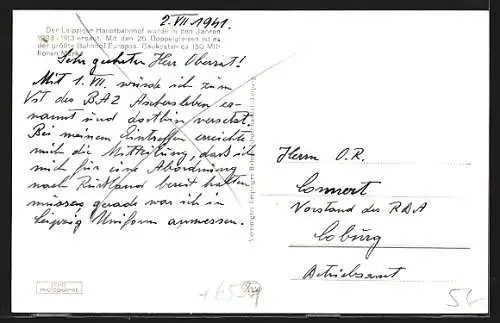 2. VII 1941.
Der Leipziger Hauptbahnhof wurde in den Jahren
1908-1913 erbaut. Mit den 26 Doppelgleisen ist es
der größte Bahnhof Europas. Baukosten ca 150 Mil-
lionen Mark.
Sehr geehrter Herr Oberrat!
Mit 1. VII. wurde ich zum
Vst des BA 2 Aschersleben er-
nannt und dorthin versetzt.
Bei meinem Eintreffen erreichte
mich die Mitteilung, daß ich
mich für eine Abordnung
nach Rußland bereit halten
müsse, gerade war ich in
Leipzig Uniform anmessen.
Herrn O.R.
Connert
Vorstand des RBA
Coburg
Betriebsamt
ECHTE
PHOTOGRAPHIE
54